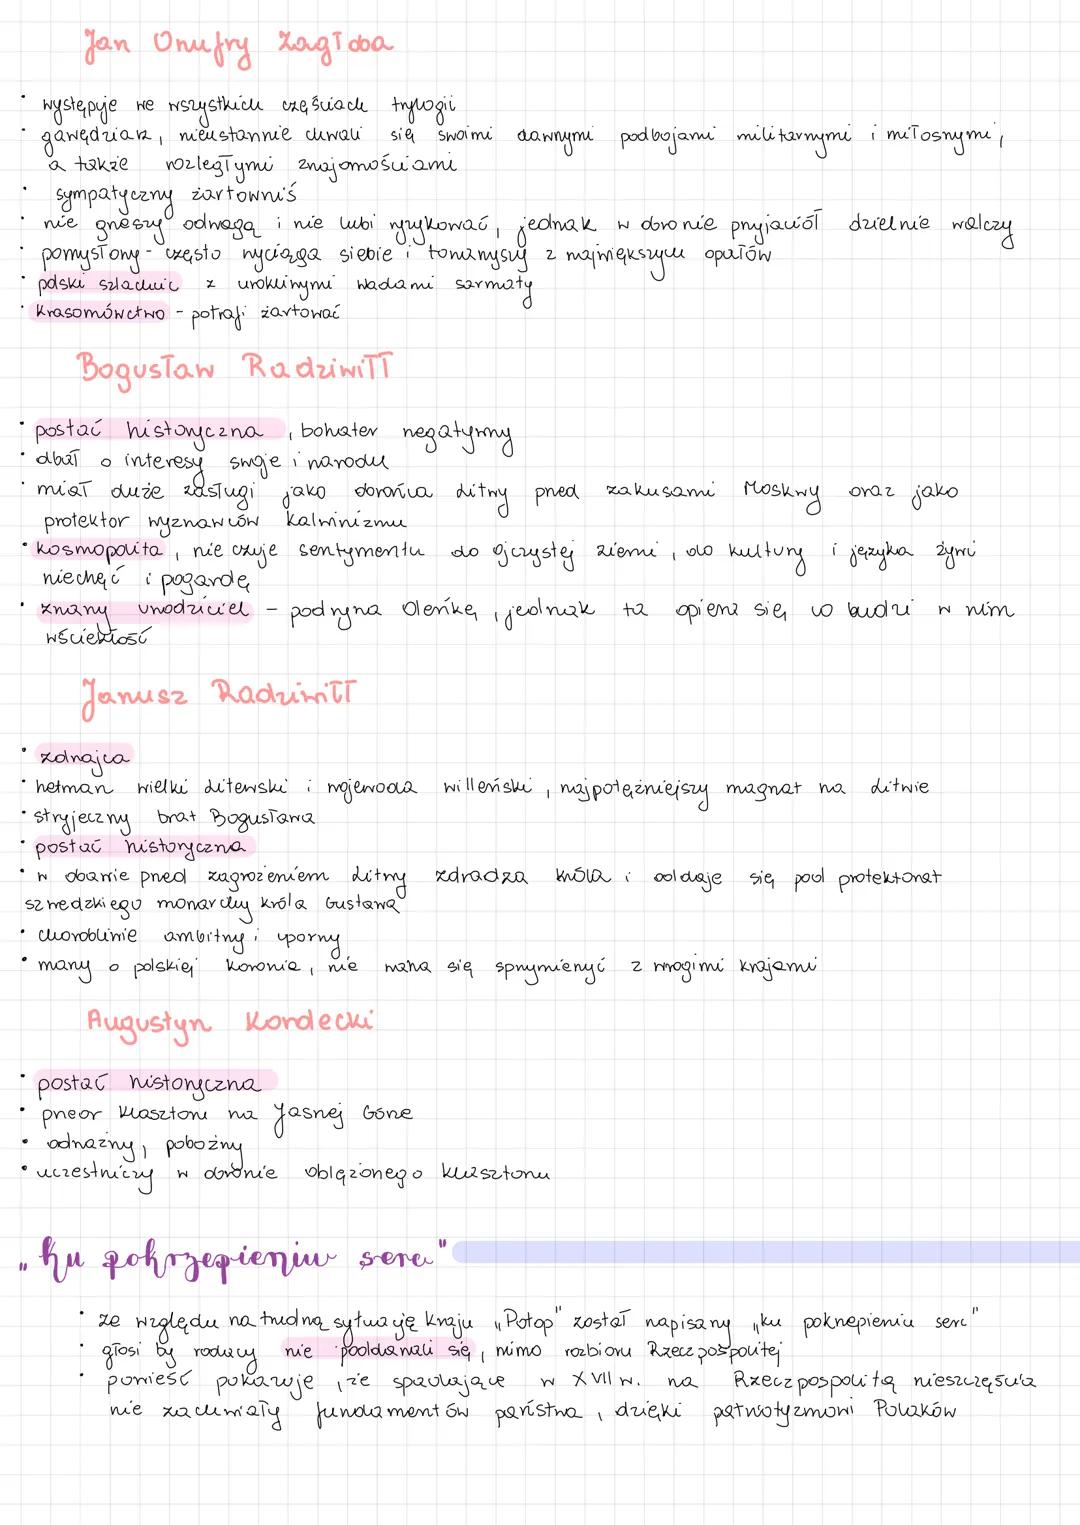 Jan Onufry Zagłoba
• występuje we wszystkich częściach trylogii
• gawędziarz, nieustannie chwali się swoimi dawnymi podbojami militarnymi i miłosnymi,
a także rozległymi znajomościami
• sympatyczny żartowniś
• nie grzeszy odwagą i nie lubi ryzykować, jednak w obronie przyjaciół dzielnie walczy
• pomysłowy - często wyciąga siebie i towarzyszy z największych opałów
• polski szlachcic z urokliwymi wadami sarmaty
• krasomówctwo - potrafi żartować
Bogusław Radziwiłł
• postać historyczna, bohater negatywny
• dbał o interesy swoje i narodu
• miał duże zasługi jako obrońca Litwy przed zakusami Moskwy oraz jako
protektor wyznawców kalwinizmu
• kosmopolita, nie czuje sentymentu do ojczystej ziemi, do kultury i języka żywi
niechęć i pogardę
• znany uwodziciel - podrywa Oleńkę, jednak ta opiera się co budzi w nim
wściekłość
Janusz Radziwiłł
• zdrajca
• hetman wielki litewski i wojewoda willeński, najpotężniejszy magnat na Litwie
• stryjeczny brat Bogusława
• postać historyczna
• w obawie przed zagrożeniem Litwy zdradza króla i oddaje się pod protektorat
szwedzkiego monarchy króla Gustawa
• chorobliwie ambitny i uporny
• marzy o polskiej koronie, nie waha się sprzymierzyć z wrogimi krajami
Augustyn Kordecki
• postać historyczna
• przeor klasztoru na Jasnej Górze
• odważny, pobożny
• uczestniczy w obronie oblężonego klasztoru
„Ku pokrzepieniu serc"
• ze względu na trudną sytuację kraju „Potop" został napisany „ku pokrzepieniu serc"
• głosi by rodacy nie poddawali się, mimo rozbioru Rzeczpospolitej
• powieść pokazuje, że spadające w XVII w. na Rzeczpospolitą nieszczęścia
nie zachwiały fundamentów państwa, dzięki patriotyzmowi Polaków